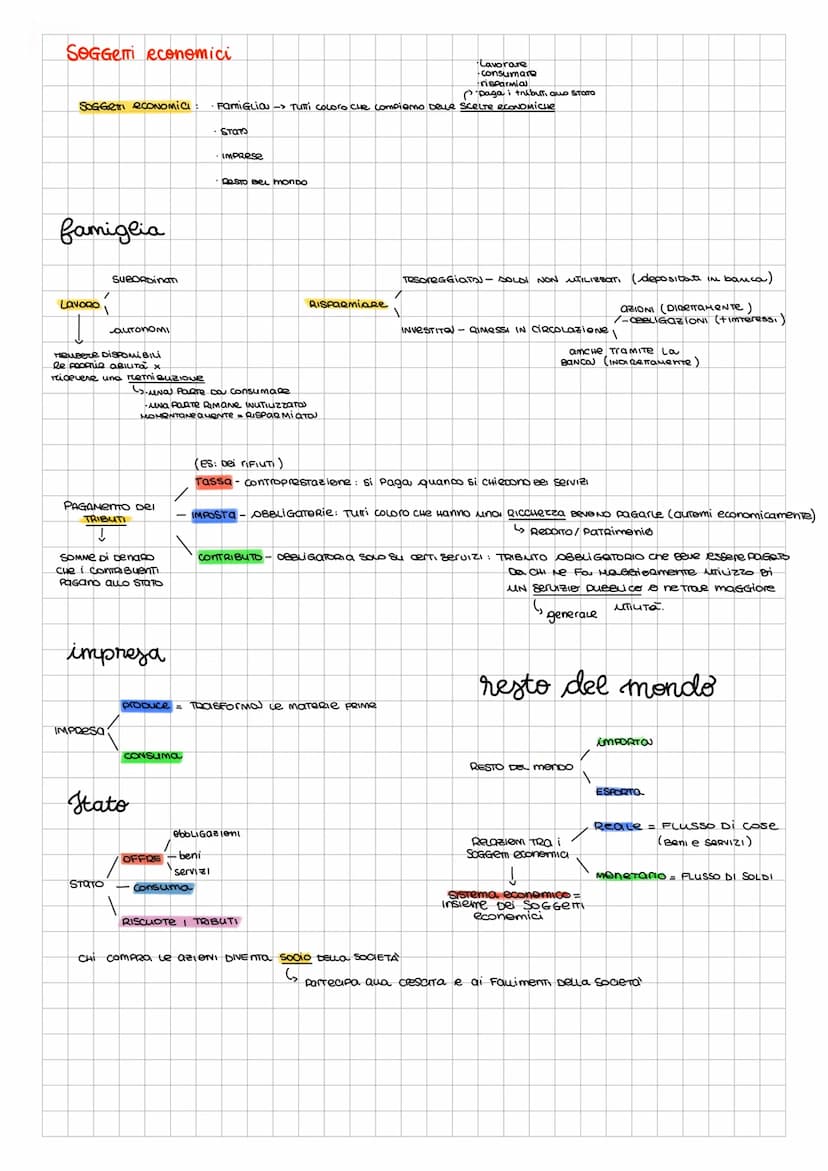 SOGGETTI economici
·Lavorare
·consumare
·risparmia
·paga i tributi allo stato
SOGGETTI ECONOMICI : · Famiglia -> TUTTI COLORO CHE COMPIONO DELLE SCELTE ECONOMICHE
· STATO
· IMPRESE
· RESTO DEL MONDO
famiglia
SUBORDINATI
LAVORO
AUTONOMI
METTERE DISPONIBILI
LE PROPRIE ABILITÀ X
RICEVERE UNA RETRIBUZIONE
·UNA PARTE DA CONSUMARE
·UNA PARTE RIMANE INUTILIZZATA
MOMENTANEAMENTE = RISPARMIATA
TESOREGGIATA - SOLDI NON UTILIZZATI (depositati IN banca)
RISPARMIARE
INVESTITA - RIMESSI IN CIRCOLAZIONE
AZIONI (DIRETTAMENTE)
-OBBLIGAZIONI (+INTERESSI)
anche TRAMITE LA
BANCA (INDIRETTAMENTE)
(ES: DEI RIFIUTI)
TASSA - CONTROPRESTAZIONE : SI PAGA QUANDO SI CHIEDONO DEI SERVIZI
PAGAMENTO DEI
TRIBUTI
IMPOSTA - OBBLIGATORIE: TUTTI COLORO CHE HANNO UNA RICCHEZZA DEVONO PAGARLE (autonomi economicamente)
REDDITO/PATRIMONIO
SOMME DI DENARO
CHE I CONTRIBUENTI
PAGANO ALLO STATO
CONTRIBUTO - OBBLIGATORIA SOLO SU CERTI SERVIZI : TRIBUTO OBBLIGATORIO CHE DEVE ESSERE PAGATO
DA CHI NE FA MAGGIORMENTE UTILIZZO DI
UN SERVIZIO PUBBLICO O NE TRAE MAGGIORE
UTILITÀ.
generale
impresa
PRODUCE = TRASFORMA LE MATERIE PRIME
IMPRESA
CONSUMA
resto del mondo
IMPORTA
RESTO DEL MONDO
ESPORTA
Stato
obbligazioni
OFFRE - beni
servizi
STATO - consuma
RISCUOTE I TRIBUTI
Reale = FLUSSO DI COSE
(BENI E SERVIZI)
RELAZIONI TRA I
SOGGETTI ECONOMICI
MONETARIO = FLUSSO DI SOLDI
SISTEMA ECONOMICO =
INSIEME DEI SOGGETTI
economici
CHI COMPRA LE AZIONI DIVENTA SOCIO DELLA SOCIETÀ
PARTECIPA ALLA CRESCITA E AI FALLIMENTI DELLA SOCIETÀ